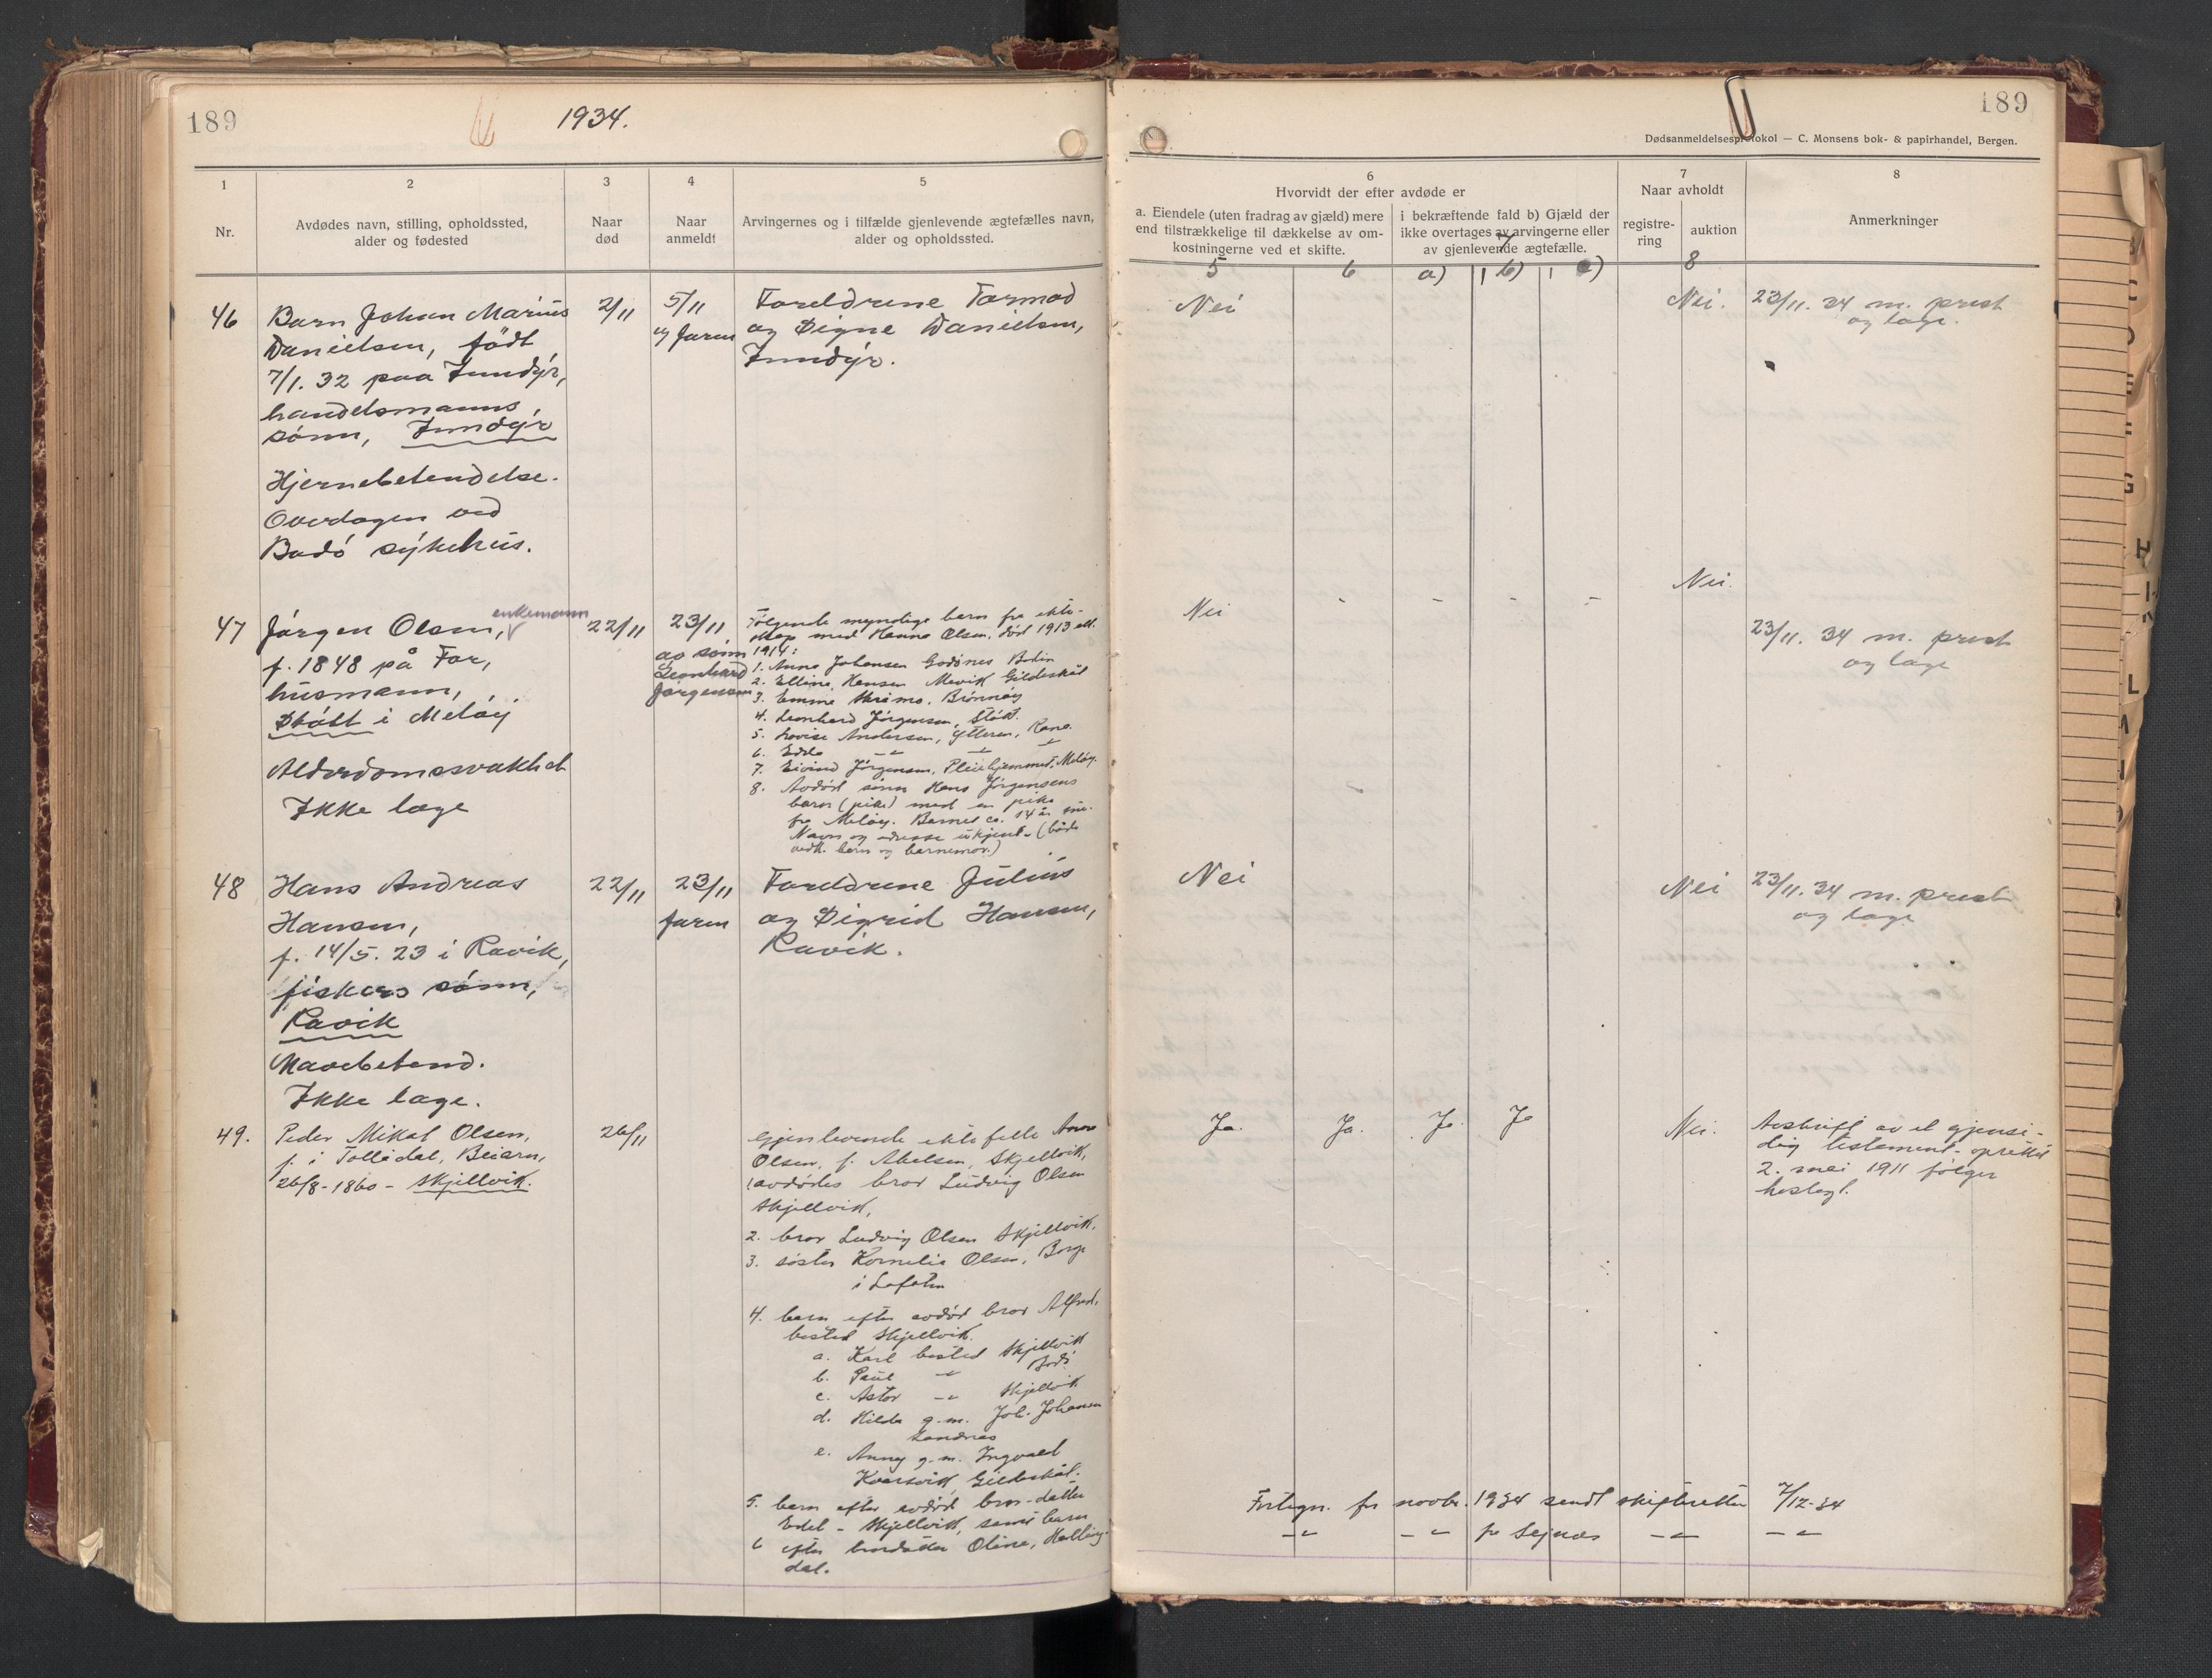 189
1934.
1
2
3
4
5
Nr.
Avdødes navn, stilling, opholdssted,
alder og fødested
Naar
død
Naar
anmeldt
Arvingernes og i tilfælde gjenlevende ægtefælles navn,
alder og opholdssted.
46
Barn Johan Marius
Danielsen, födt
7/1. 32 paa Inndyr,
handelsmanns
sönn, Inndyr
Hjernebetendelse.
Overlægen ved
Bodö sykehus.
2/11
5/11
av faren
Foreldrene Tormod
og Signe Danielsen,
Inndyr.
47
Jörgen Olsen, enkemann
f. 1848 på For,
husmann,
Stött i Melöy
Alderdomssvakhet
Ikke læge
22/11
23/11
av sønn
Leonhard
Jørgensen
Følgende myndige barn fra ekte-
skap med Hanna Olsen, død 1913 ell.
1914:
1. Anna Johansen Godønes Bodin
2. Elline Hansen Mevik Gildeskål
3. Emma Brønnøy
4. Leonhard Jørgensen, Støtt.
5. Lovise Andersen, Ytteren, Rana.
6. Edda -"- -"- -"-
7. Eivind Jørgensen, Pleiehjemmet, Meløy.
8. Avdød sønn Hans Jørgensens
barn (pike) med en pike
fra Meløy. Barnet ca. 14 år
Navn og adresse ukjent - (både
vedk. barn og barnemor.)
48
Hans Andreas
Hansen,
f. 14/5. 23 i Ravik,
fiskers sönn,
Ravik
Mavebetend.
Ikke læge.
22/11
23/11
faren
Foreldrene Julius
og Sigrid Hansen,
Ravik.
49.
Peder Mikal Olsen,
f. i Tollådal, Beiarn,
26/8-1860 - Skjellvik.
26/11
Gjenlevende ektefelle Anna
Olsen, f. Abelsen, Skjellvik,
(avdødes bror Ludvig Olsen
Skjellvik,
2. bror Ludvig Olsen Skjellvik.
3. søster Kornelie Olsen, Borge
i Lofoten
4. barn efter avdød bror Alfred,
bosted Skjellvik.
a. Karl bosted Skjellvik
b. Paul -"- Bodø
c. Astor -"- Skjellvik
d. Hilda g.m. Joh. Johansen
Sandnes
e. Anny g.m. Ingvald
Kvarsvik, Gildeskål.
5. barn efter avdød bror-datter
Edel - Skjellvik, samt barn
6 efter brordatter Oline,
189
Dødsanmeldelsesprotokol — C. Monsens bok- & papirhandel, Bergen.
6
7
8
Hvorvidt der efter avdøde er
Naar avholdt
a. Eiendele (uten fradrag av gjæld) mere
end tilstrækkelige til dækkelse av om-
kostningerne ved et skifte.
i bekræftende fald b) Gjæld der
ikke overtages av arvingerne eller
av gjenlevende ægtefælle.
registre-
ring
auktion
Anmerkninger
7
5
6
a)
b)
c)
8
Nei
Nei.
23/11. 34 m. prest
og læge.
Nei
-
-
-
-
Nei.
23/11. 34 m. prest
og læge
Nei
Nei
23/11. 34 m. prest
og læge
Ja.
Ja.
Ja.
Ja
Nei.
Avskrift av et gjensi-
dig testament - oprettet
2. mai 1911 følger
beslagl.
Fortegn. for novbr. 1934 sendt skifteretten 7/12-34
-"- -"- -"- -"-